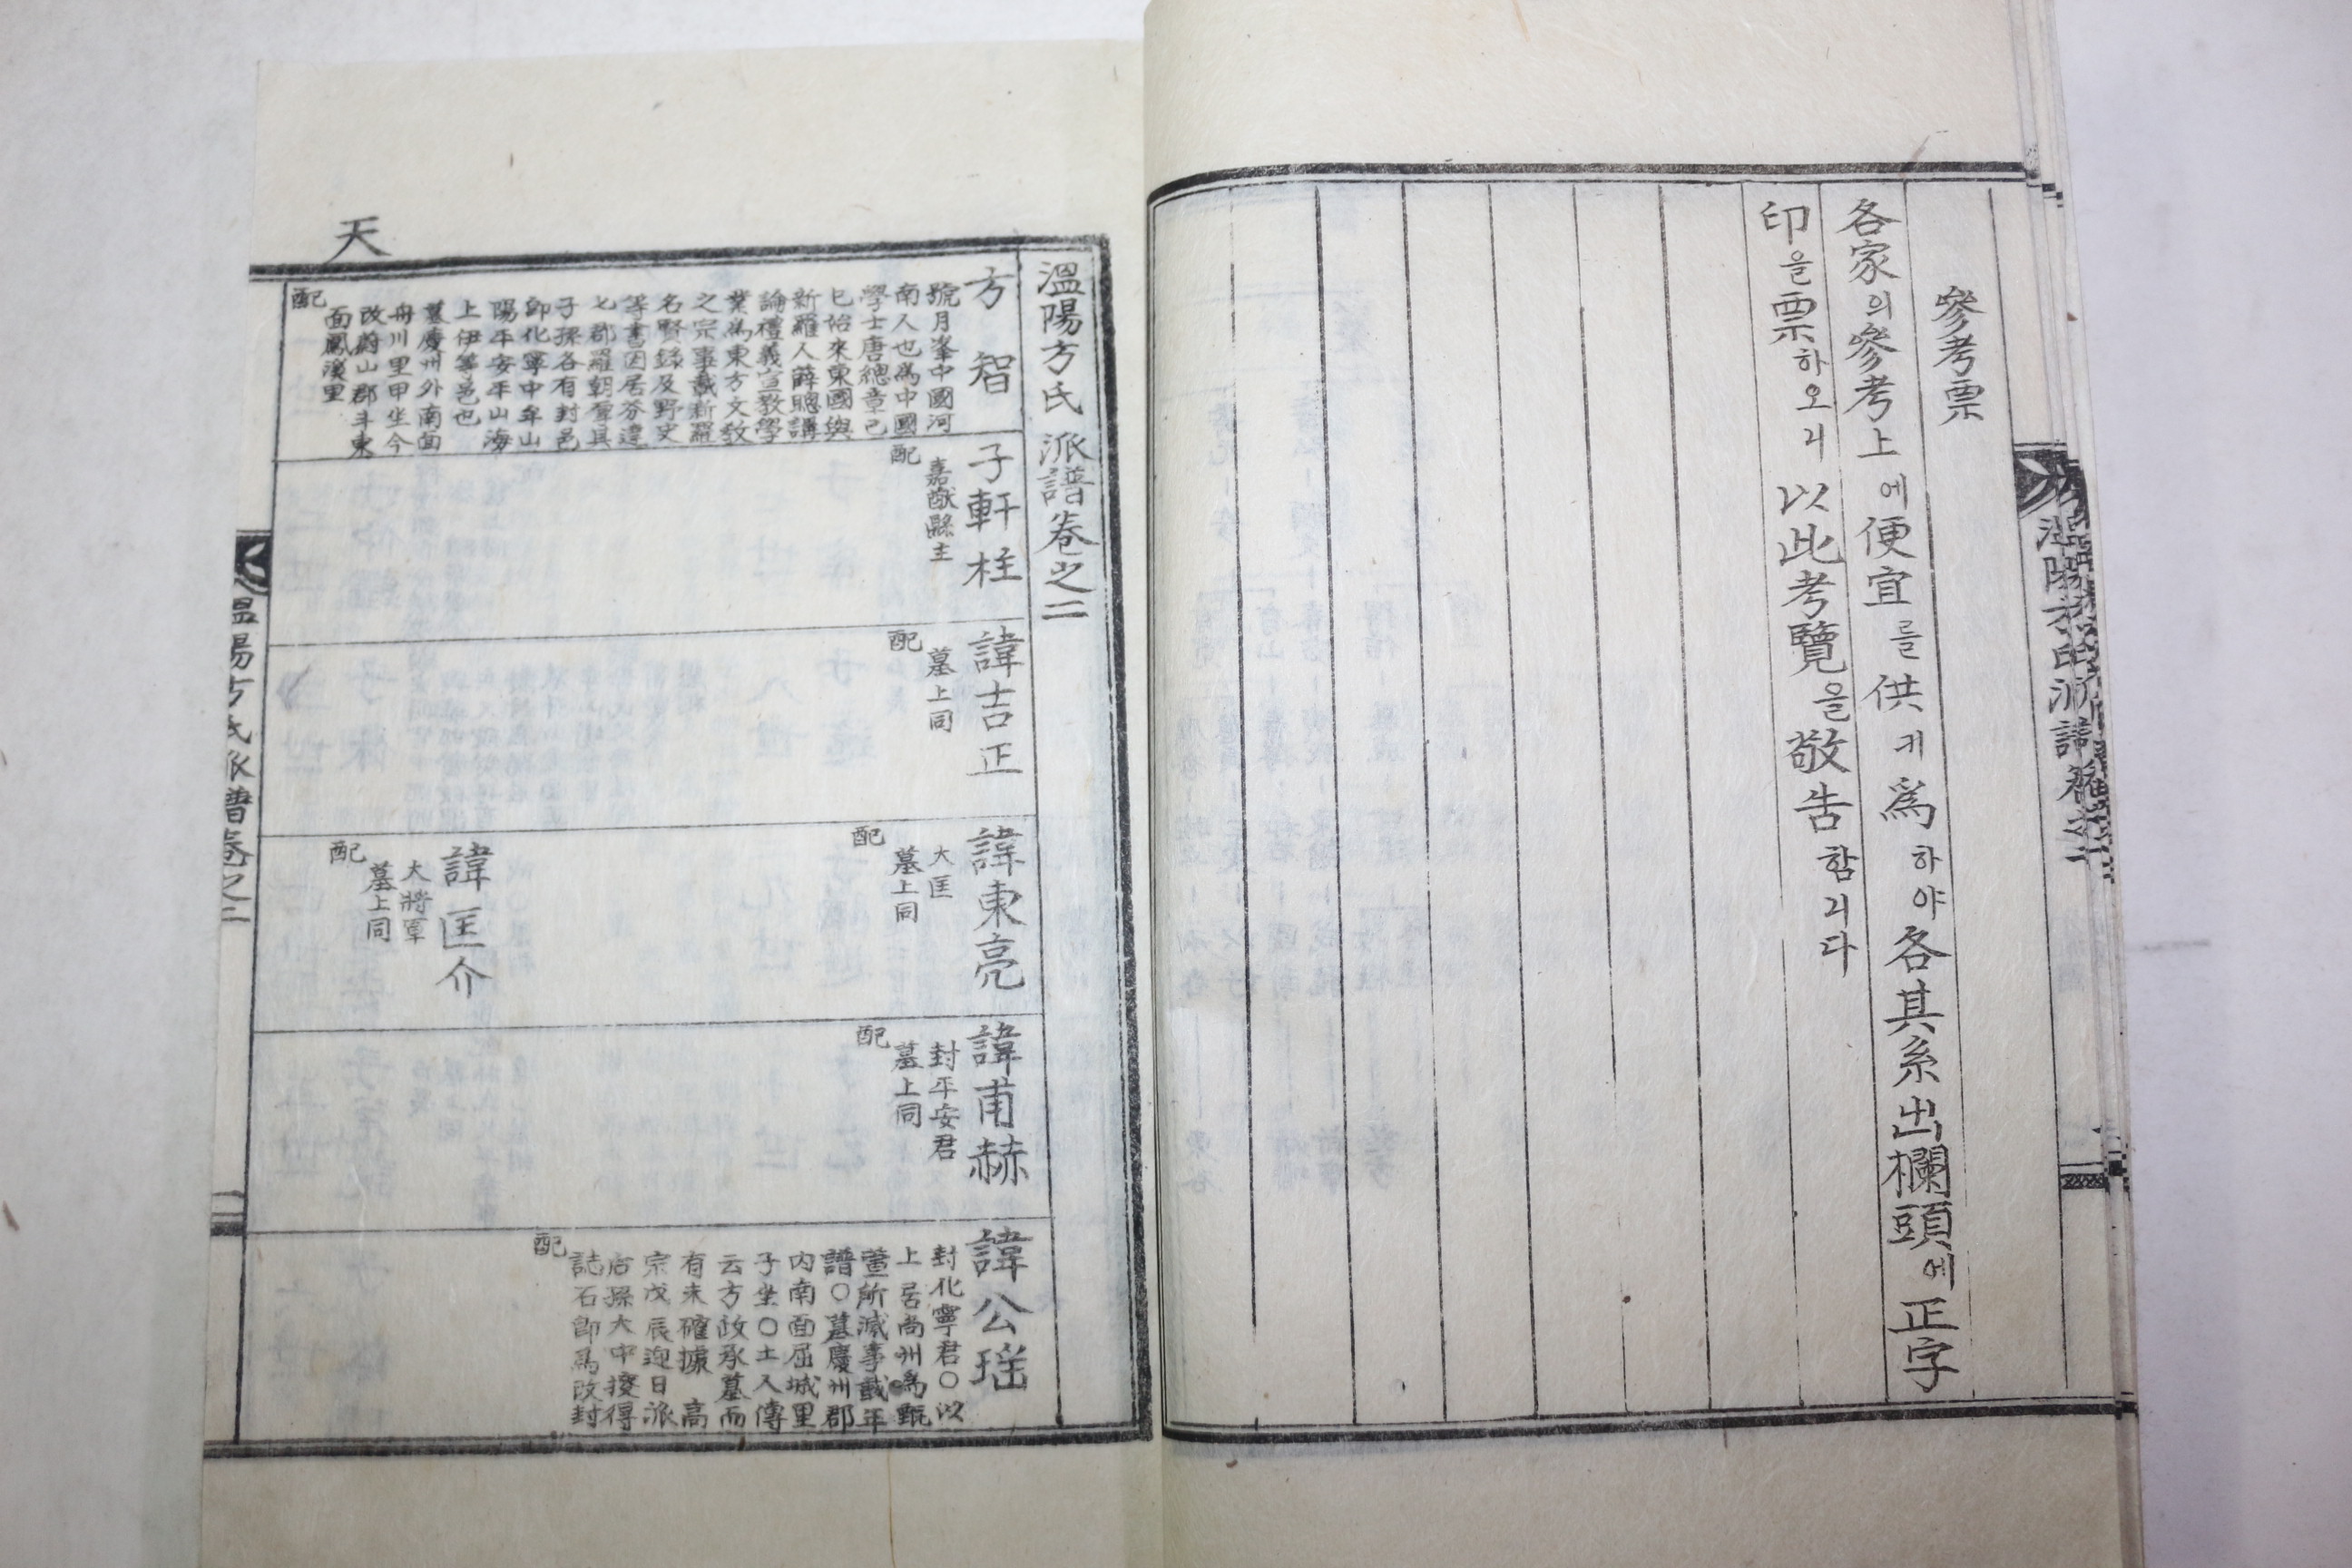 參考票
各家의參考上에便宜를供키爲하야各其系出欄頭에正字
印을票하오니以此考覽을敬告함니다
溫陽方氏派譜卷之二
天
方智
號月峯中國河
南人也爲中國
學士唐總章己
巳始來東國與
新羅人薛聰講
論禮義宣敎學
業爲東方文敎
之宗事載新羅
名賢錄及野史
等書因居芬違
七郡羅朝擢其
子孫各有封邑
卽化寧中牟山
陽平安平山海
上伊等邑也
墓慶州外南面
舟川里甲坐今
改蔚山郡斗東
面鳳溪里
配
子軒柱
嘉猷縣主
配
諱吉正
墓上同
配
諱東亮
大匡
墓上同
配
諱匡介
大將軍
墓上同
配
諱甫赫
封平安君
墓上同
配
諱公瑤
封化寧君○以
上居尙州爲甄
萱所滅事載年
譜○墓慶州郡
內南面屈城里
子坐○土人傳
云方政承墓而
有未確據 高
宗戊辰迎日派
后孫大中搜得
誌石卽爲改封
配
溫陽方氏派譜卷之二